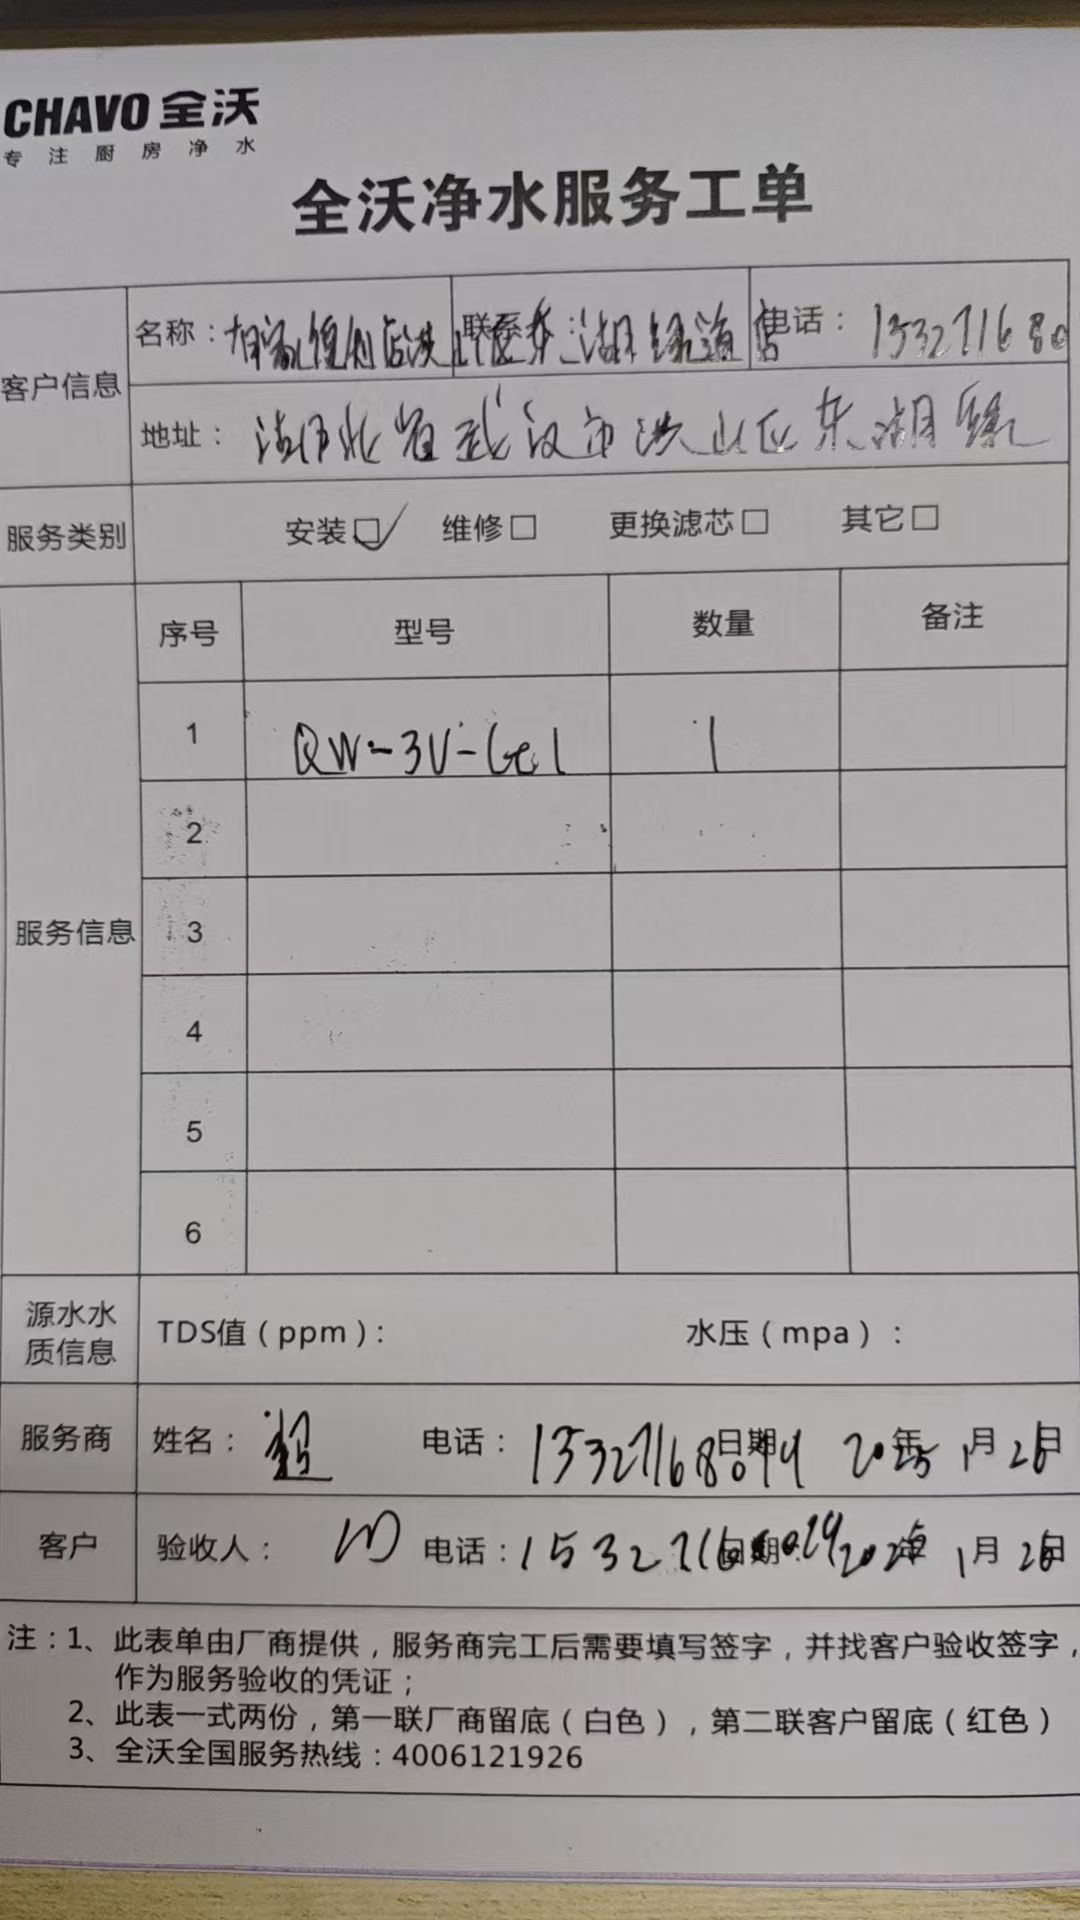 CHAVO 全沃
专注厨房净水
全沃净水服务工单
客户信息
名称： 联系 东湖绿道店 电话： 153271680
地址： 湖北省武汉市洪山区东湖绿
服务类别 安装☑ 维修□ 更换滤芯□ 其它□
服务信息
序号 型号 数量 备注
1 QW-3V-Ge1 1
2
3
4
5
6
源水水质信息 TDS值（ppm）： 水压（mpa）：
服务商 姓名： 超 电话： 日期 2025年1月26日
客户 验收人： 电话： 日期： 年1月26日
注：1、此表单由厂商提供，服务商完工后需要填写签字，并找客户验收签字，
作为服务验收的凭证；
2、此表一式两份，第一联厂商留底（白色），第二联客户留底（红色）
3、全沃全国服务热线：4006121926